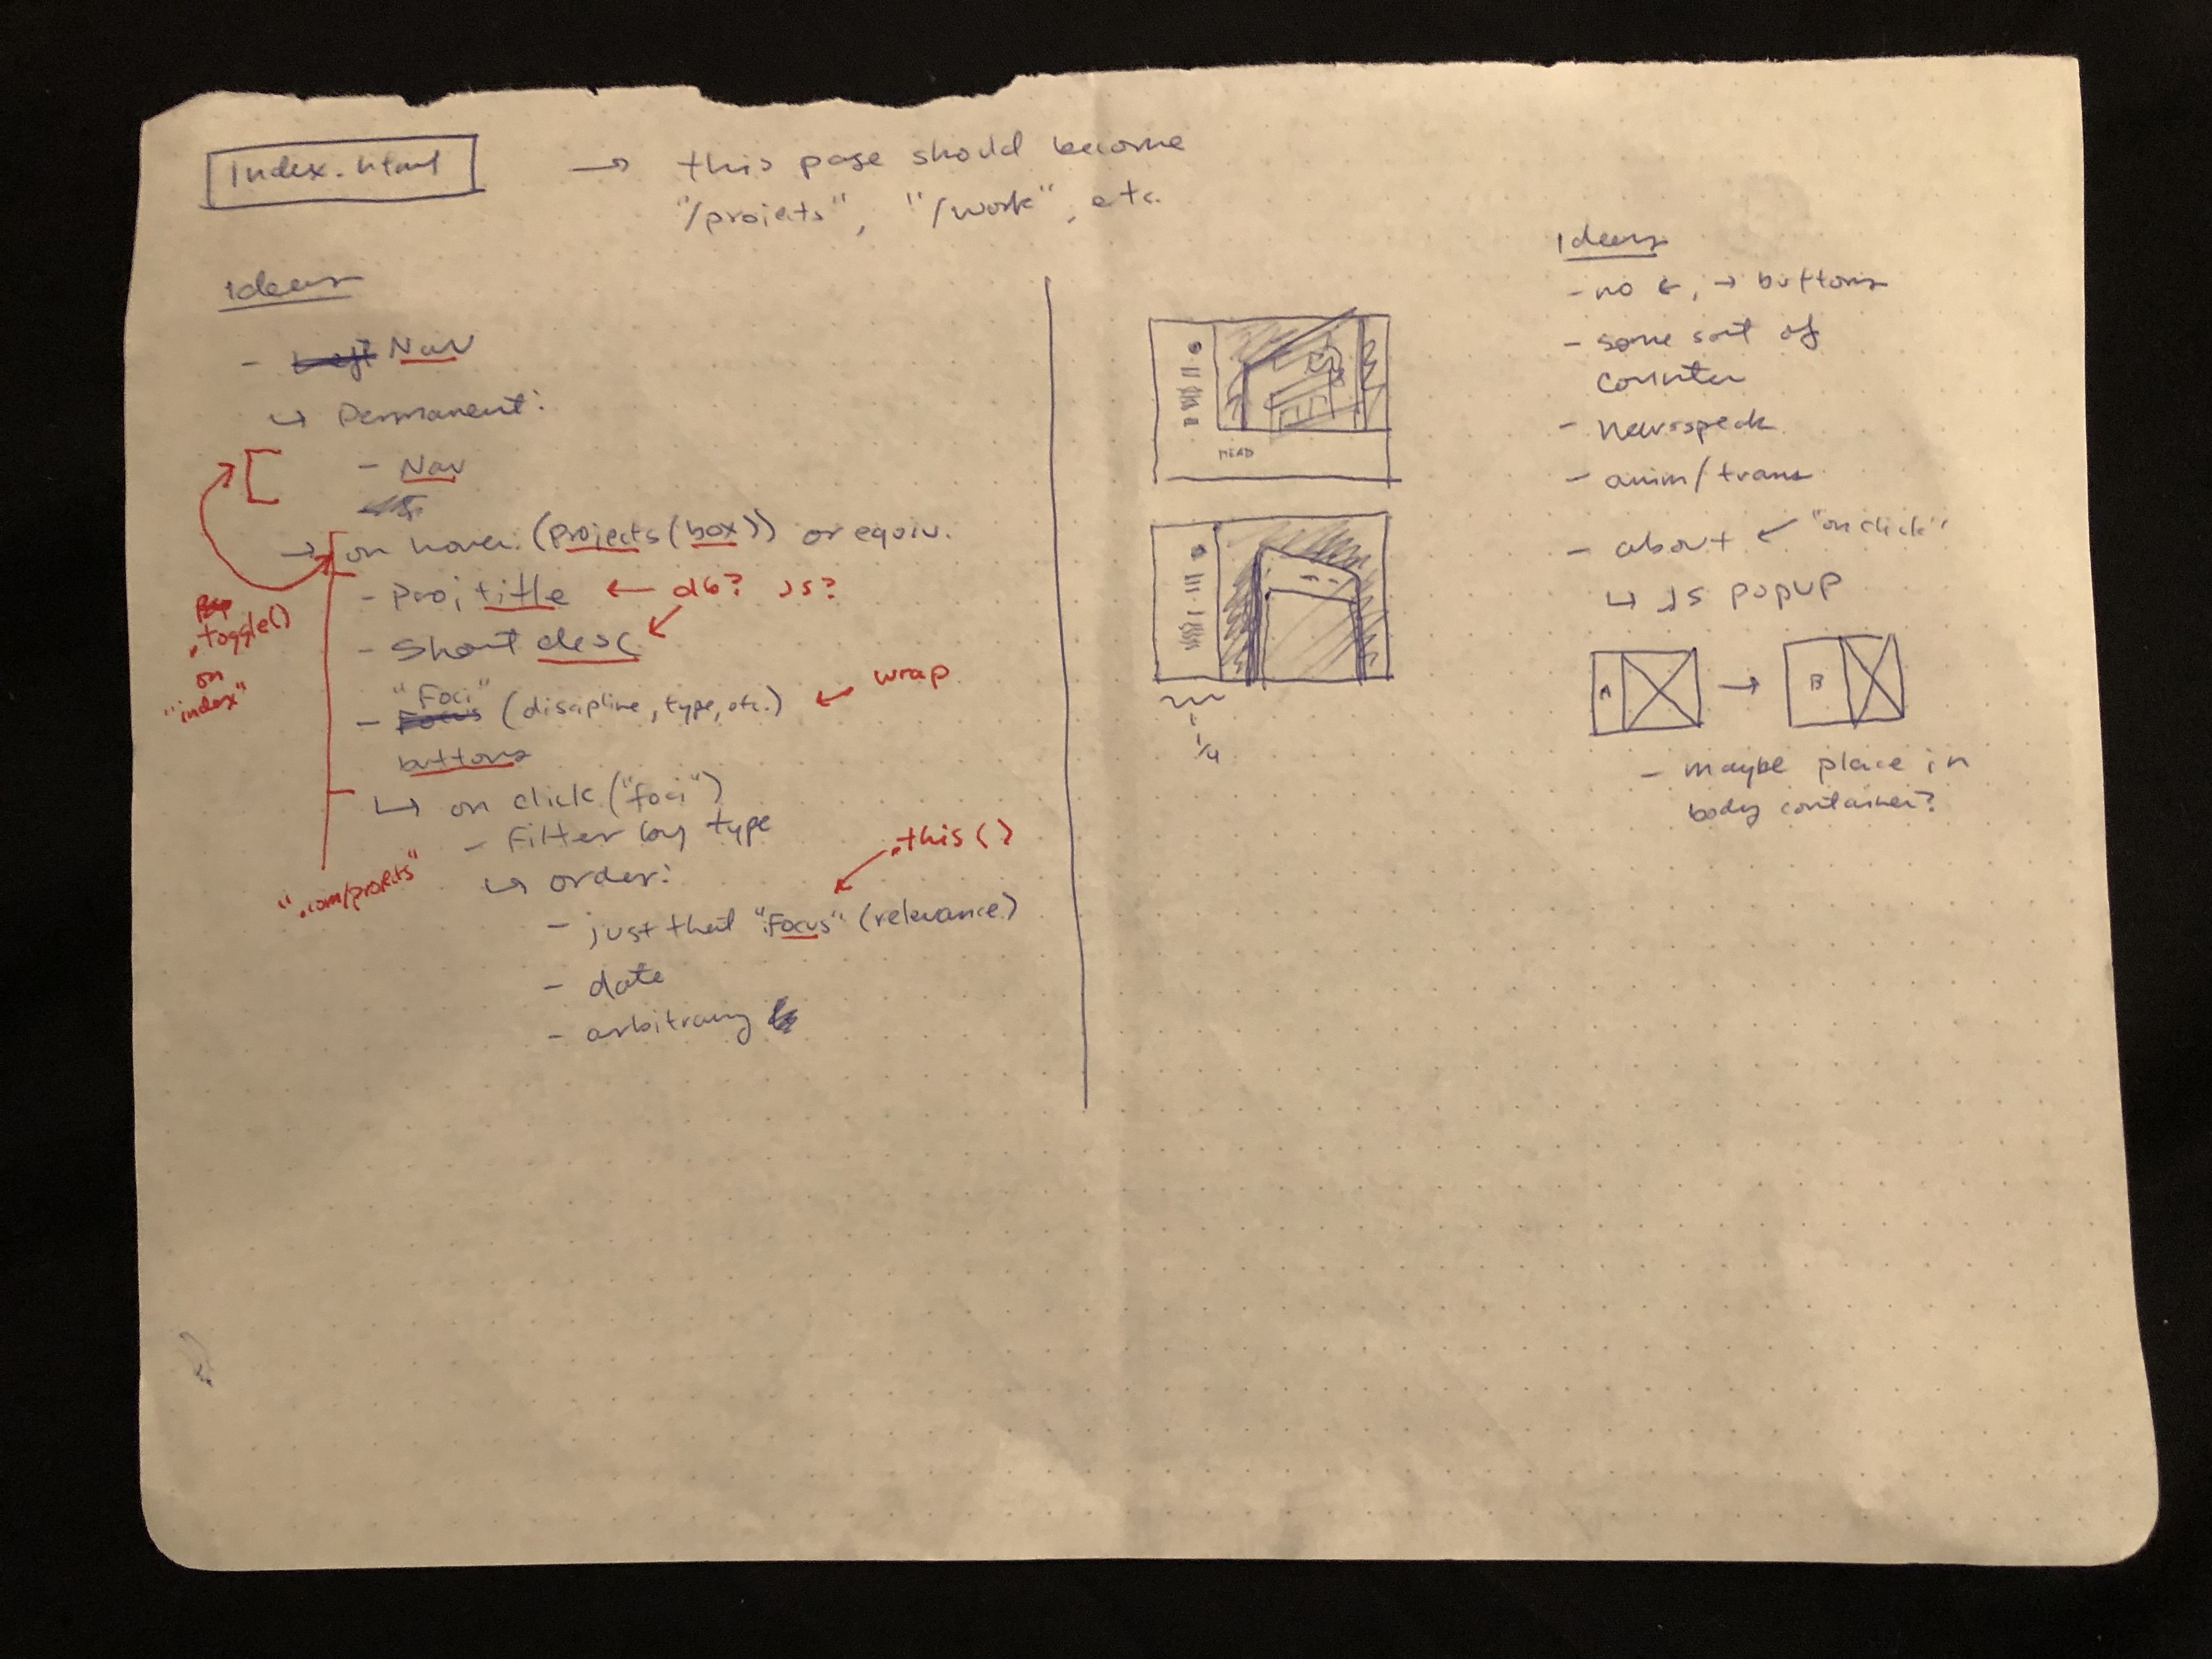 index.html → this page should become
"/projects", "/work", etc.
Ideas
- Left Nav
↳ permanent:
- Nav
→ on hover: (projects(box)) or equiv.
- proj title ← db? js?
- Short desc.
- Focus "Foci" (discipline, type, etc.) ← wrap
buttons
↳ on click ("foci")
- filter by type
↳ order:
- just that "Focus" (relevance)
- date
- arbitrary
.toggle()
on
"index"
".com/projects"
.this()
1/4
Ideas
- no ←, → buttons
- some sort of
counter
- Newsspeak
- anim/trans
- about ← "on click"
↳ JS popup
A → B
- maybe place in
body container?